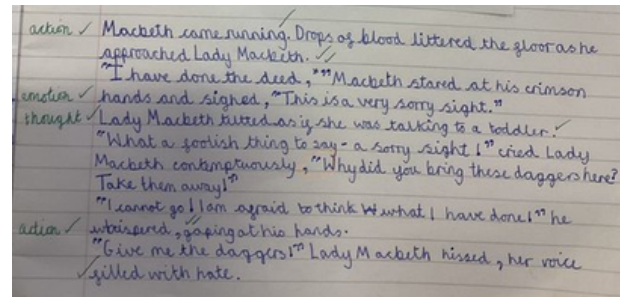 action ✓ Macbeth came running. Drops of blood littered the floor as he
approached Lady Macbeth. ✓✓
"I have done the deed," "Macbeth stared at his crimson
emotion ✓ hands and sighed, "This is a very sorry sight."
thought ✓ Lady Macbeth tutted as if she was talking to a toddler. ✓
"What a foolish thing to say - a sorry sight!" cried Lady
Macbeth contemptuously, "Why did you bring these daggers here?
Take them away!"
"I cannot go! I am afraid to think what I have done!" he
action ✓ whispered, gaping at his hands.
"Give me the daggers!" Lady Macbeth hissed, her voice
✓ filled with hate.